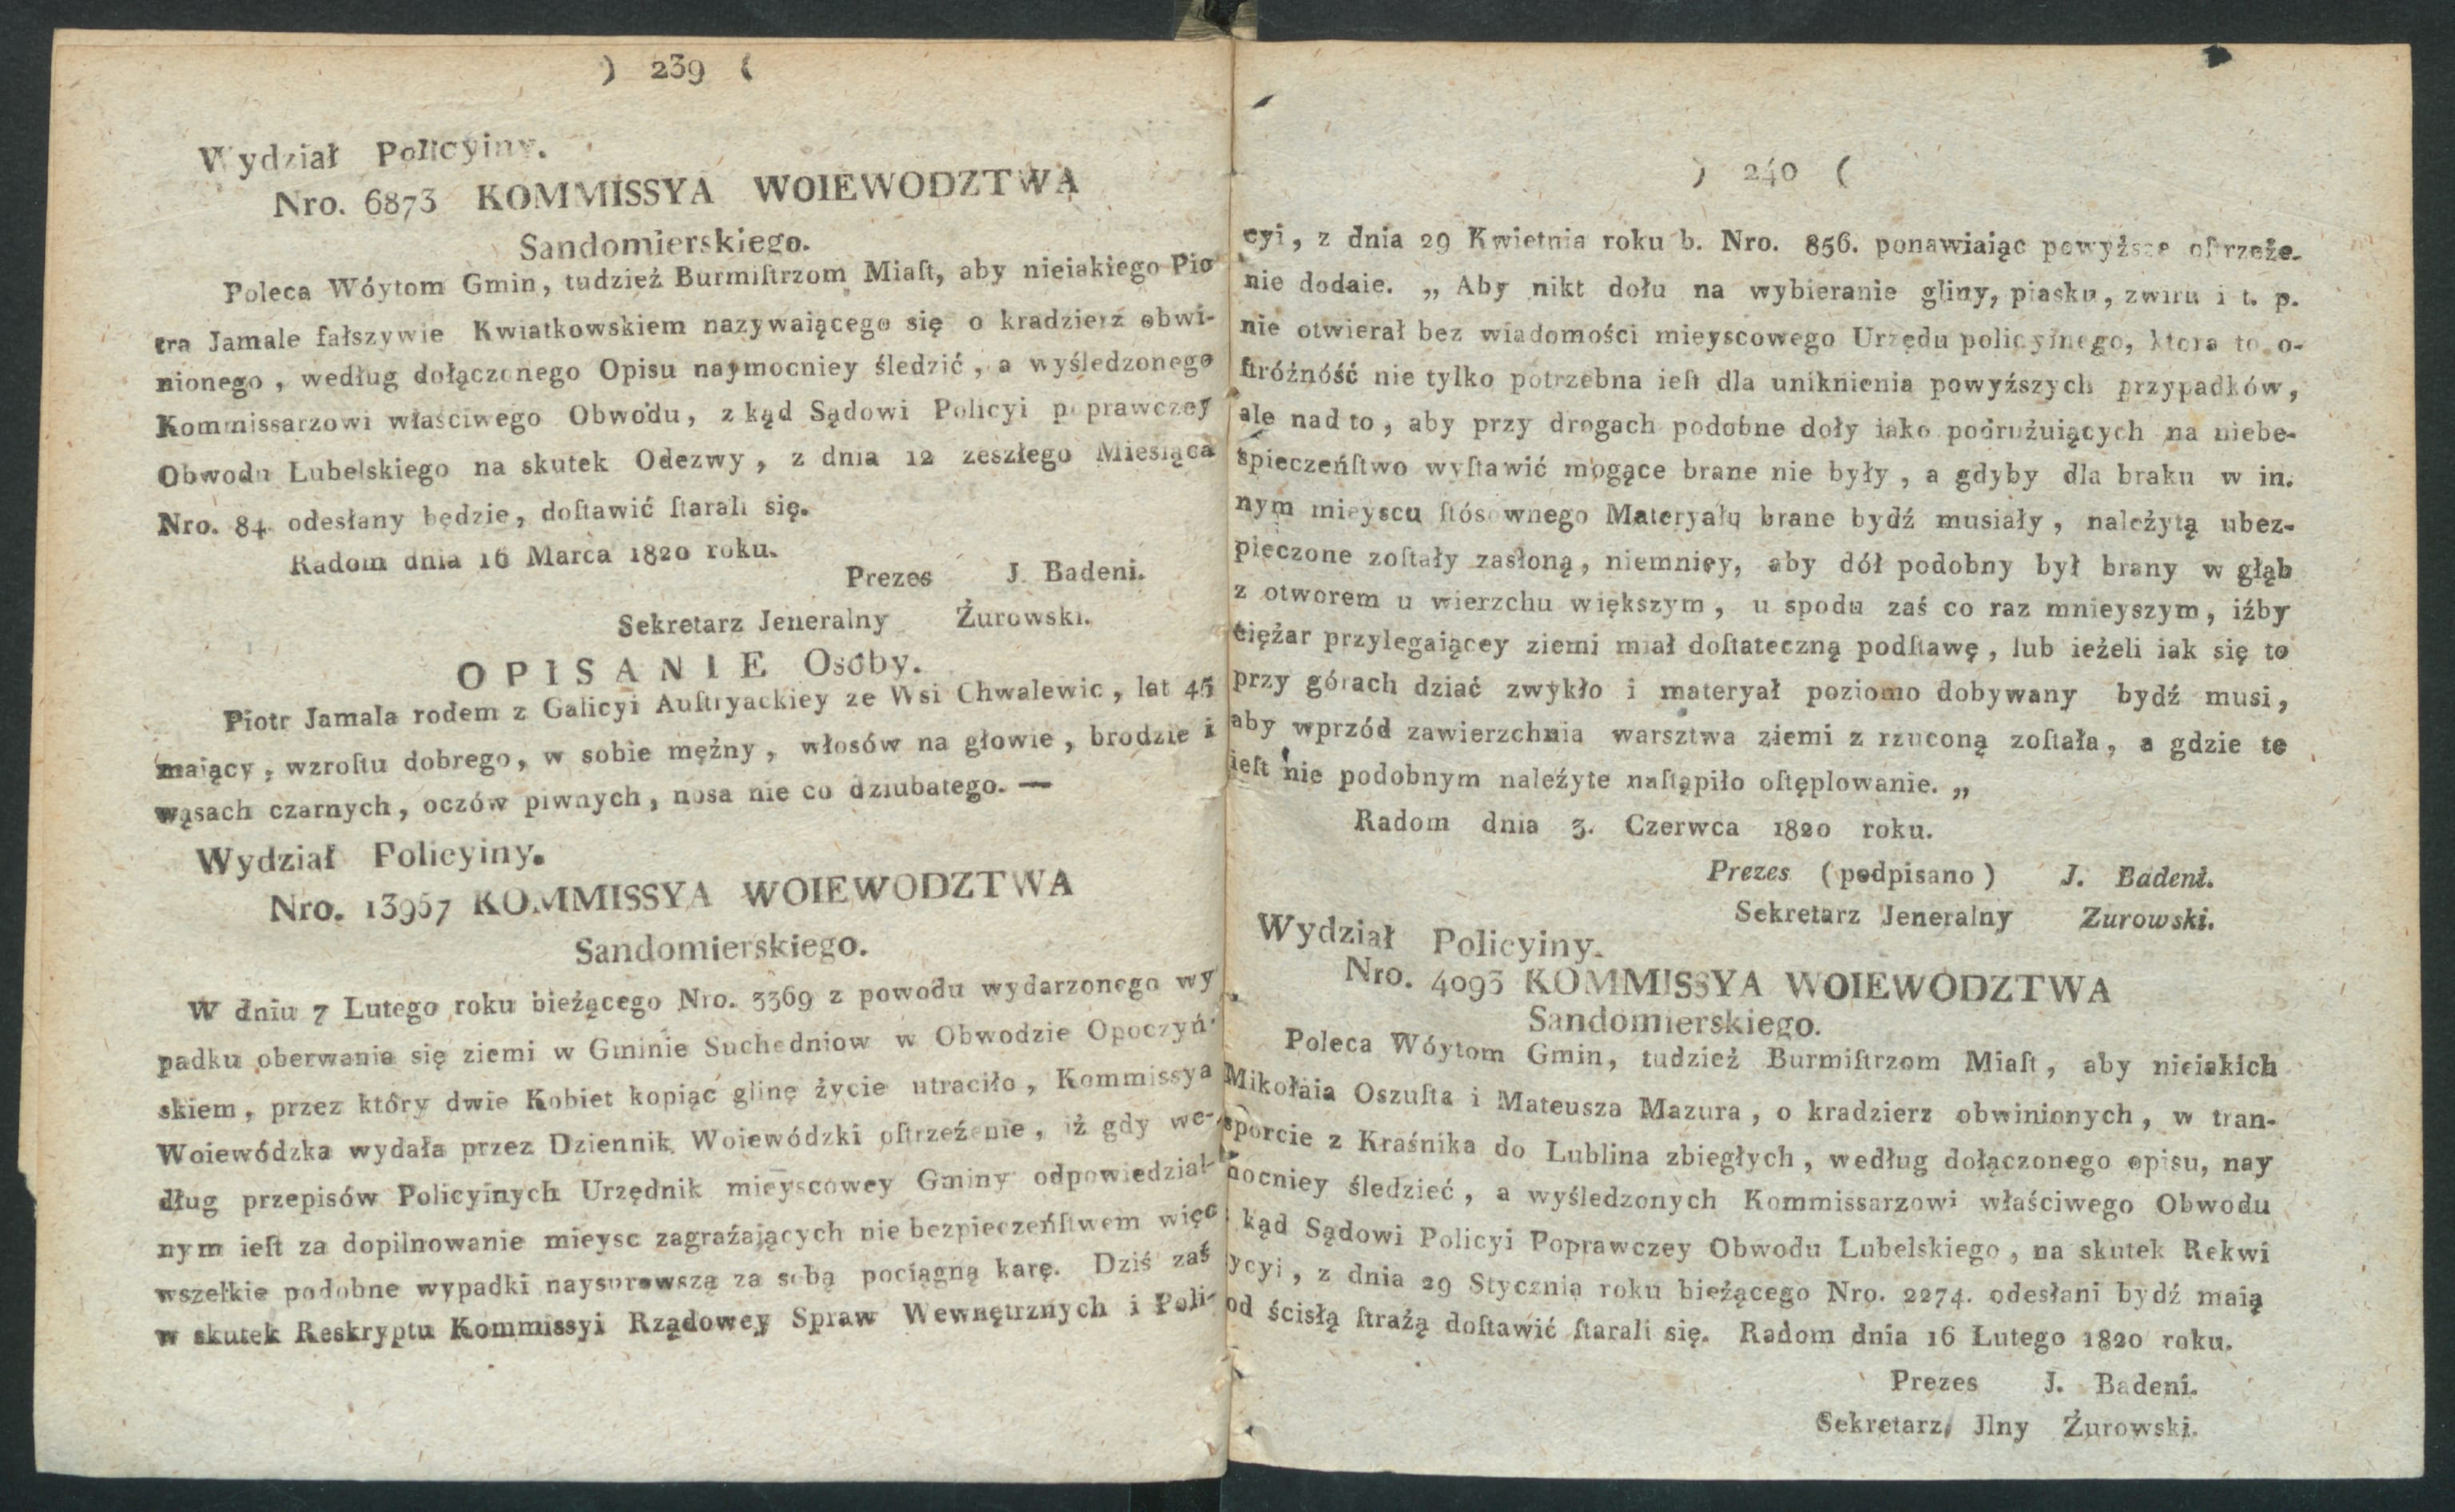 ) 239 (
Wydział Policyiny.
Nro. 6873 KOMMISSYA WOIEWODZTWA
Sandomierskiego.
Poleca Wóytom Gmin, tudzież Burmiſtrzom Miaſt, aby nieiakiego Pio
tra Jamale fałszywie Kwiatkowskiem nazywaiącego się o kradzierz obwi-
nionego, według dołączonego Opisu naymocniey śledzić, a wyśledzonego
Kommissarzowi właściwego Obwodu, z kąd Sądowi Policyi poprawczey
Obwodu Lubelskiego na skutek Odezwy, z dnia 12 zeszłego Miesiąca
Nro. 84 odesłany będzie, doſtawić ſtarali się.
Radom dnia 16 Marca 1820 roku.
Prezes J. Badeni.
Sekretarz Jeneralny Żurowski.
OPISANIE Osoby.
Piotr Jamala rodem z Galicyi Auſtryackiey ze Wsi Chwalewic, lat 45
maiący, wzroſtu dobrego, w sobie mężny, włosów na głowie, brodzie i
wąsach czarnych, oczów piwnych, nosa nie co dziubatego. —
Wydział Policyiny.
Nro. 13967 KOMMISSYA WOIEWODZTWA
Sandomierskiego.
W dniu 7 Lutego roku bieżącego Nro. 3369 z powodu wydarzonego wy
padku oberwania się ziemi w Gminie Suchedniow w Obwodzie Opoczyń-
skiem, przez który dwie Kobiet kopiąc glinę życie utraciło, Kommissya
Woiewódzka wydała przez Dziennik Woiewódzki oſtrzeżenie, iż gdy we-
dług przepisów Policyinych Urzędnik mieyscowey Gminy odpowiedzial-
nym ieſt za dopilnowanie mieysc zagrażających niebezpieczeńſtwem więc
wszelkie podobne wypadki naysurowszą za sobą pociągną karę. Dziś zaś
w skutek Reskryptu Kommissyi Rządowey Spraw Wewnętrznych i Poli-
) 240 (
cyi, z dnia 29 Kwietnia roku b. Nro. 856. ponawiaiąc powyższe oſtrzeże-
nie dodaie. „ Aby nikt dołu na wybieranie gliny, piasku, zwiru i t. p.
nie otwierał bez wiadomości mieyscowego Urzędu policyinego, ktora to o-
ſtróźność nie tylko potrzebna ieſt dla uniknienia powyższych przypadków,
ale nad to, aby przy drogach podobne doły iako podrużuiących na niebe-
spieczeńſtwo wyſtawić mogące brane nie były, a gdyby dla braku w in.
nym mieyscu ſtósownego Materyału brane bydź musiały, należytą ubez-
pieczone zoſtały zasłoną, niemniey, aby dół podobny był brany w głąb
z otworem u wierzchu większym, u spodu zaś co raz mnieyszym, iźby
ciężar przylegaiącey ziemi miał doſtateczną podſtawę, lub ieżeli iak się to
przy górach dziać zwykło i materyał poziomo dobywany bydź musi,
aby wprzód zawierzchnia warsztwa ziemi z rzuconą zoſtała, a gdzie te
ieſt nie podobnym należyte naſtąpiło oſtęplowanie. „
Radom dnia 3. Czerwca 1820 roku.
Prezes (podpisano) J. Badeni.
Sekretarz Jeneralny Zurowski.
Wydział Policyiny.
Nro. 4093 KOMMISSYA WOIEWODZTWA
Sandomierskiego.
Poleca Wóytom Gmin, tudzież Burmiſtrzom Miaſt, aby nieiakich
Mikołaia Oszuſta i Mateusza Mazura, o kradzierz obwinionych, w tran-
sporcie z Kraśnika do Lublina zbiegłych, według dołączonego opisu, nay
mocniey śledzieć, a wyśledzonych Kommissarzowi właściwego Obwodu
kąd Sądowi Policyi Poprawczey Obwodu Lubelskiego, na skutek Rekwi
ycyi, z dnia 29 Stycznia roku bieżącego Nro. 2274. odesłani bydź maią
od ścisłą ſtrażą doſtawić ſtarali się. Radom dnia 16 Lutego 1820 roku.
Prezes J. Badeni.
Sekretarz Jlny Żurowski.